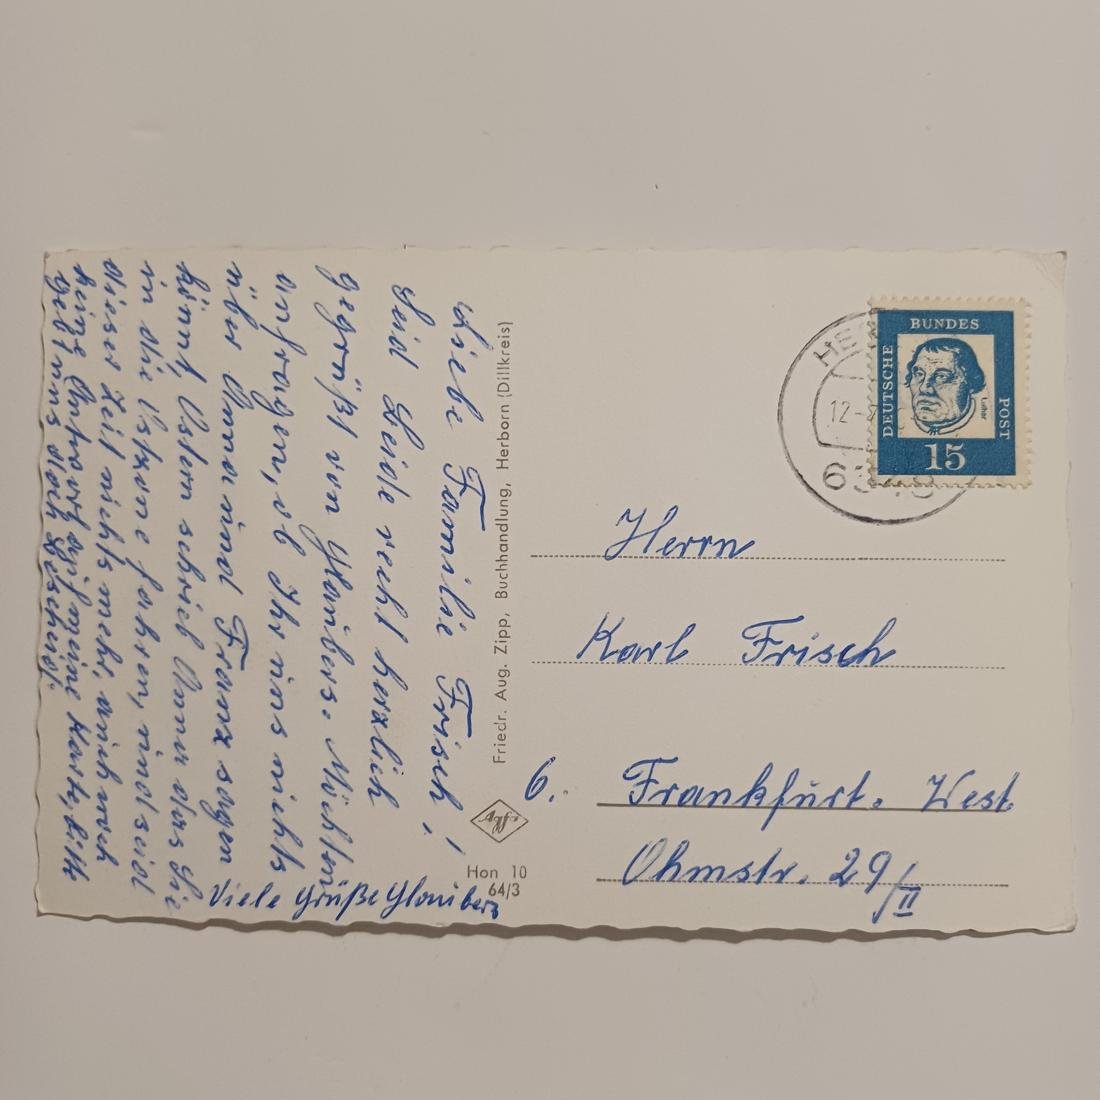 Liebe Familie Frisch!
Seid Beide recht herzlich
gegrüßt von Glaubers. Möchten
anfragen, ob Ihr uns nichts
über Anna und Franz sagen
könnt, Ostern schrieb Anna das Sie
in die Ostzone fahren, und seid
dieser Zeit nichts mehr, auch noch
keine Antwort auf meine Karte, bitte
gebt uns doch Bescheid.
Viele Grüße Glaubers
Friedr. Aug. Zipp, Buchhandlung, Herborn (Dillkreis)
Hon 10
64/3
DEUTSCHE BUNDES POST
Luther
15
12
Herrn
Karl Frisch
6. Frankfurt. West.
Ohmstr. 29/II